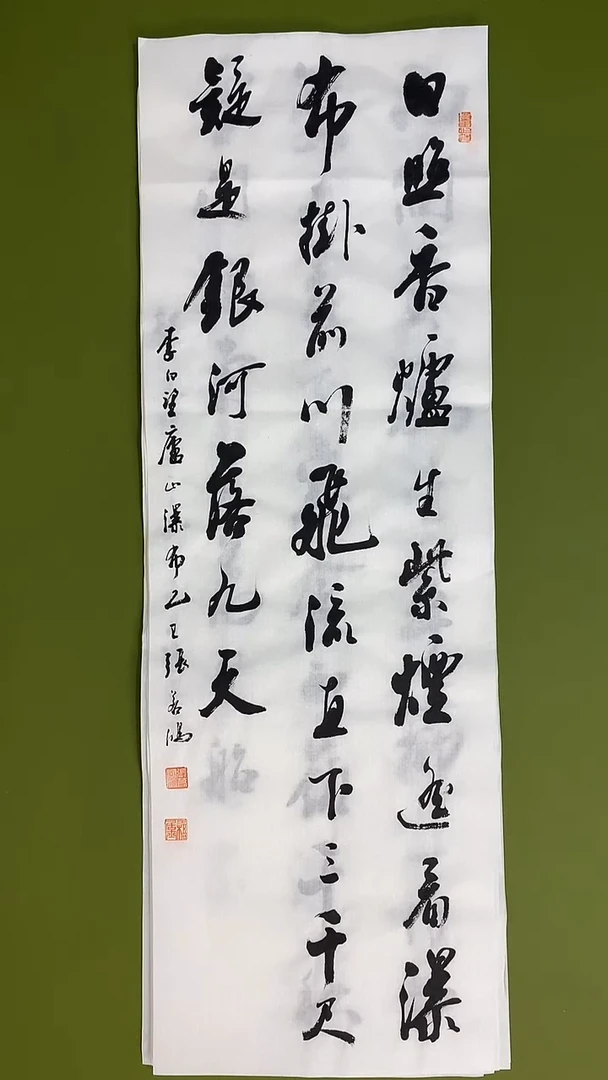 日照香爐生紫煙遙看瀑
布掛前川飛流直下三千尺
疑是銀河落九天
李白望廬山瀑布乙巳張若鴻